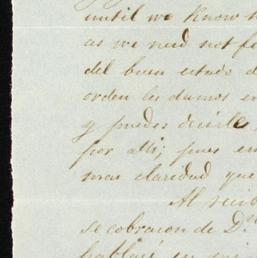 until we know
as we need not
del buen estado d
orden les damos en
y puedes decirle
por alli; pues en
mas claridad que
Al recib
se cobraron de D.
hablaré en mi